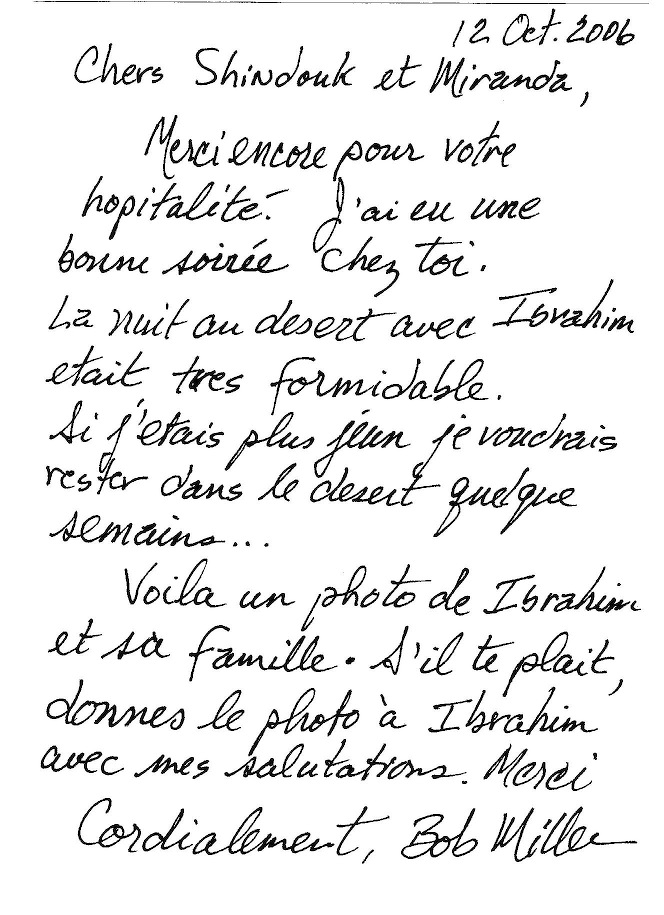 12 Oct. 2006
Chers Shindouk et Miranda,
Merci encore pour votre
hopitalité. J'ai eu une
bonne soirée chez toi.
La nuit au desert avec Ibrahim
etait tres formidable.
Si j'étais plus jéun je voudrais
rester dans le desert quelque
semains...
Voila un photo de Ibrahim
et sa famille. S'il te plait,
donnes le photo à Ibrahim
avec mes salutations. Merci
Cordialement, Bob Miller